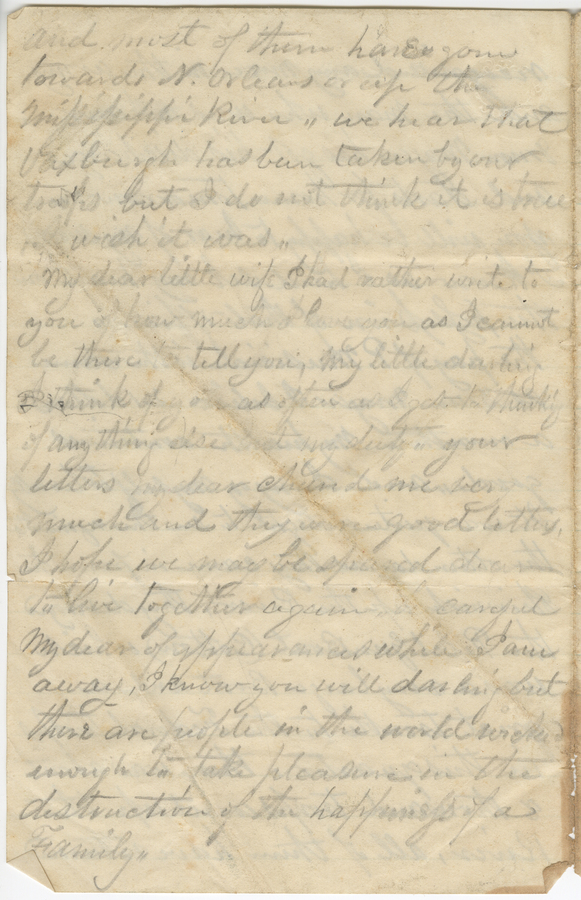 and most of them have gone
towards N. Orleans or up the
Mississippi River " we hear that
Vixburgh has been taken by our
troops but I do not think it is true
wish it was "
My dear little wife I had rather write to
you of how much I love you as I cannot
be there to tell you, my little darling
I think of you as often as I get to think'g
of any thing else but my duty " your
letters my dear cheered me very
much and they were good letters,
I hope we may be spared dear
to live together again, be careful
my dear of appearances while I am
away, I know you will darling but
there are people in the world wicked
enough to take pleasure in the
destruction of the happiness of a
Family "